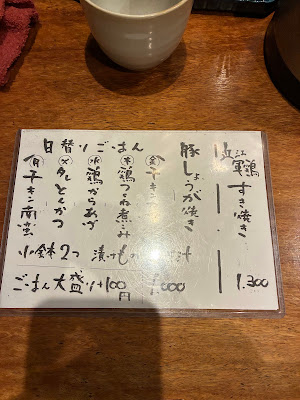 日替りごはん
近江軍鶏すき焼き
1.300
豚しょうが焼き
金 チキン
木 鶏つくね煮こみ
水 鶏からあげ
火 タレとんかつ
月 チキン南蛮
小鉢2つ 漬けもの 汁
1.000
ごはん大盛り+100円